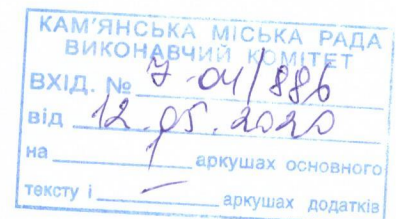 КАМ'ЯНСЬКА МІСЬКА РАДА
ВИКОНАВЧИЙ КОМІТЕТ
ВХІД. № 7-04/886
від 12.05.2020
на 1 аркушах основного
тексту і — аркушах додатків